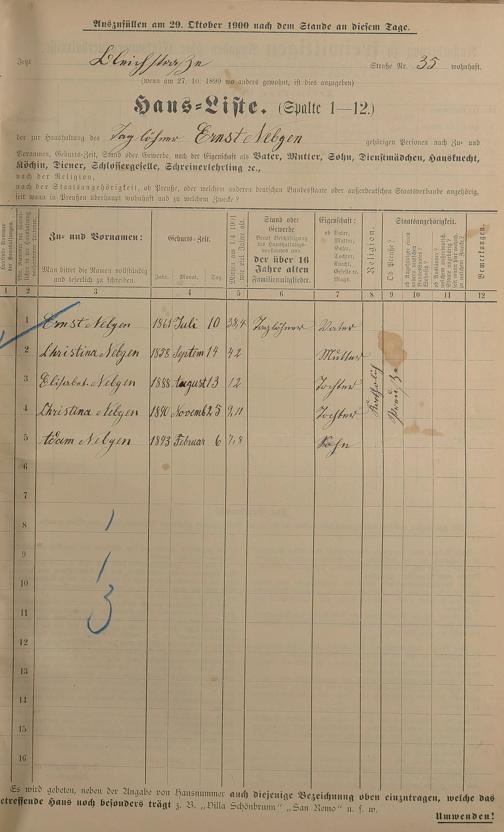 Auszufüllen am 29. Oktober 1900 nach dem Stande an diesem Tage.
Jetzt Bleichstraße Straße Nr. 35 wohnhaft.
(wenn am 27. 10. 1899 wo anders gewohnt, ist dies anzugeben)
Haus-Liste. (Spalte 1—12.)
der zur Haushaltung des Taglöhner Ernst Nebgen gehörigen Personen nach Zu- und
Vornamen, Geburts-Zeit, Stand oder Gewerbe, nach der Eigenschaft als Vater, Mutter, Sohn, Dienstmädchen, Hausknecht,
Köchin, Diener, Schlossergeselle, Schreinerlehrling ec.,
nach der Religion,
nach der Staatsangehörigkeit, ob Preuße, oder welchem anderen deutschen Bundesstaate oder außerdeutschen Staatsverbande angehörig,
seit wann in Preußen überhaupt wohnhaft und zu welchem Zwecke?
Zu- und Vornamen:
Man bittet die Namen vollständig
und leserlich zu schreiben.
Geburts-Zeit.
Jahr. Monat. Tag.
Stand oder
Gewerbe
der über 16
Jahre alten
Familienmitglieder.
Eigenschaft:
ob Vater,
Mutter,
Sohn,
Tochter,
Knecht,
Geselle u.
Magd.
Religion.
Staatsangehörigkeit.
Ob Preuße?
Bemerkungen.
1 2 3 4 5 6 7 8 9 10 11 12
1 Ernst Nebgen 1861 Juli 10 38,4 Taglöhner Vater
2 Christina Nebgen 1858 Septem 14 42 Mutter
3 Elisabet Nebgen 1888 August 13 12 Tochter
4 Christina Nebgen 1890 Novemb 25 9,11 Tochter
5 Adam Nebgen 1893 Februar 6 7,8 Sohn
Katholisch
Preuße
6
7
8
9
10
11
12
13
14
15
16
Es wird gebeten, neben der Angabe von Hausnummer auch diejenige Bezeichnung oben einzutragen, welche das
betreffende Haus noch besonders trägt z. B. "Villa Schönbrunn" "San Remo" u. s. w.
Umwenden!